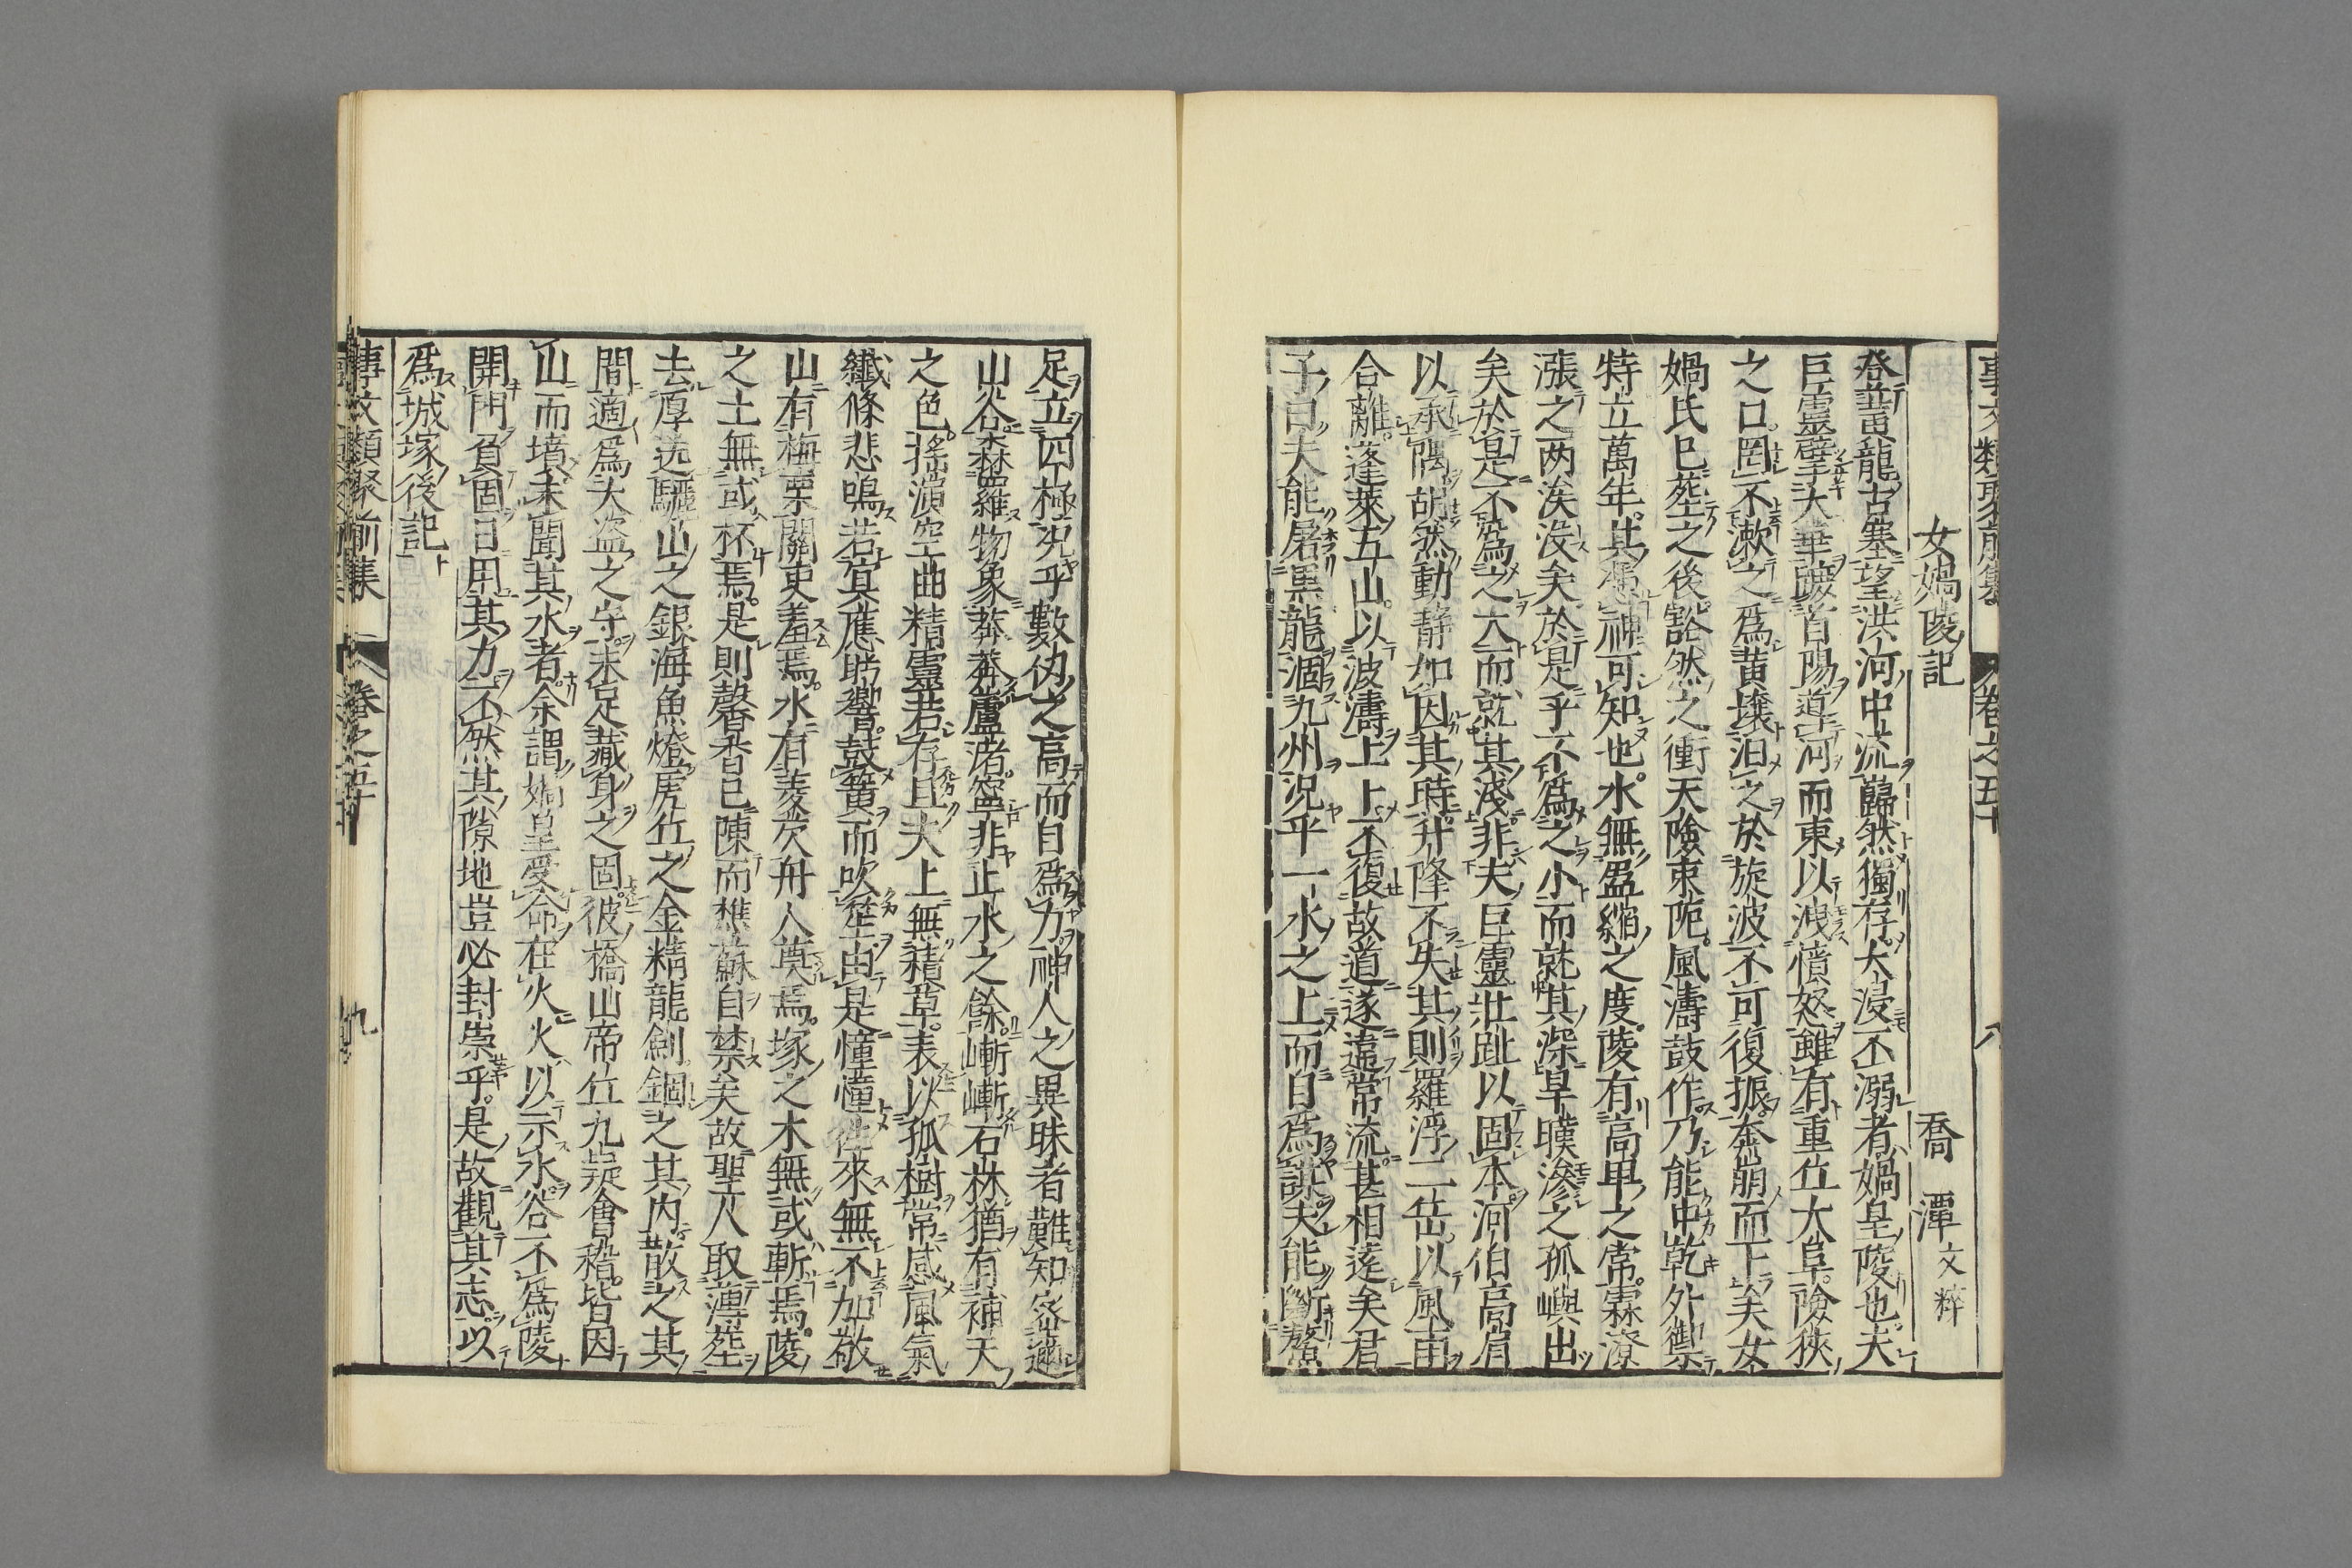 事文類聚前集 卷之五十 八
女媧陵記 喬潭文粹
登黃龍古塞望洪河中流巋然獨存大浸不溺者媧皇陵也夫
巨靈擘太華蹠首陽導河而東以洩憤怒雖有重丘大阜險狹
之口罔不漱之爲黃壤汩之於旋波不可復振奔崩而下矣女
媧氏已葬之後豁然之衝天險束阨風濤鼓作乃能中乾外禦
特立萬年其憑神可知也水無盈縮之度陵有高卑之常霖潦
漲之两涘没矣於是乎不爲之小而就其深旱暵滲之孤嶼出
矣於是不爲之大而就其淺非夫巨靈壯趾以固本河伯高肩
以承隅胡然動静如因其時升降不失其則羅浮二岳以風雨
合離蓬萊五山以波濤上上不復故道遂違常流甚相遠矣君
子曰夫能屠黑龍涸九州況乎一水之上而自爲謀夫能斷鼇
足立四極況乎數仞之高而自爲力神人之異昧者難知密邇
山谷森羅物象莽莽蘆渚寧非止水之餘嶄嶄石林猶有補天
之色揺漾空曲精靈若存且大上無積草表以孤樹常感風氣
纖條悲鳴若冥應肹蠁鼓簧而吹笙由是憧憧徃來無不加敬
山有梅栗關吏羞焉水有菱芡舟人奠焉塚之木無或斬焉陵
之土無或杯焉是則馨香已陳而樵蘇自禁矣故聖人取薄葬
去厚送驪山之銀海魚燈虎丘之金精龍劍錮之其内散之其
間適爲大盗之守未足藏身之固彼橋山帝丘九疑會稽皆因
山而墳未聞其水者余謂媧皇受命在火火以示水谷不爲陵
開門負固日用其力不然其隙地豈必封崇乎是故觀其志以
爲城塚後記
事文類聚前集 卷之五十 九